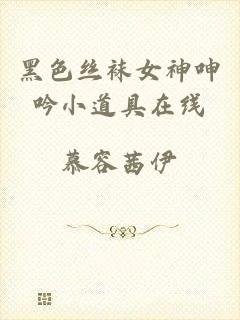 黑色丝袜女神呻
吟小道具在线
慕容茜伊